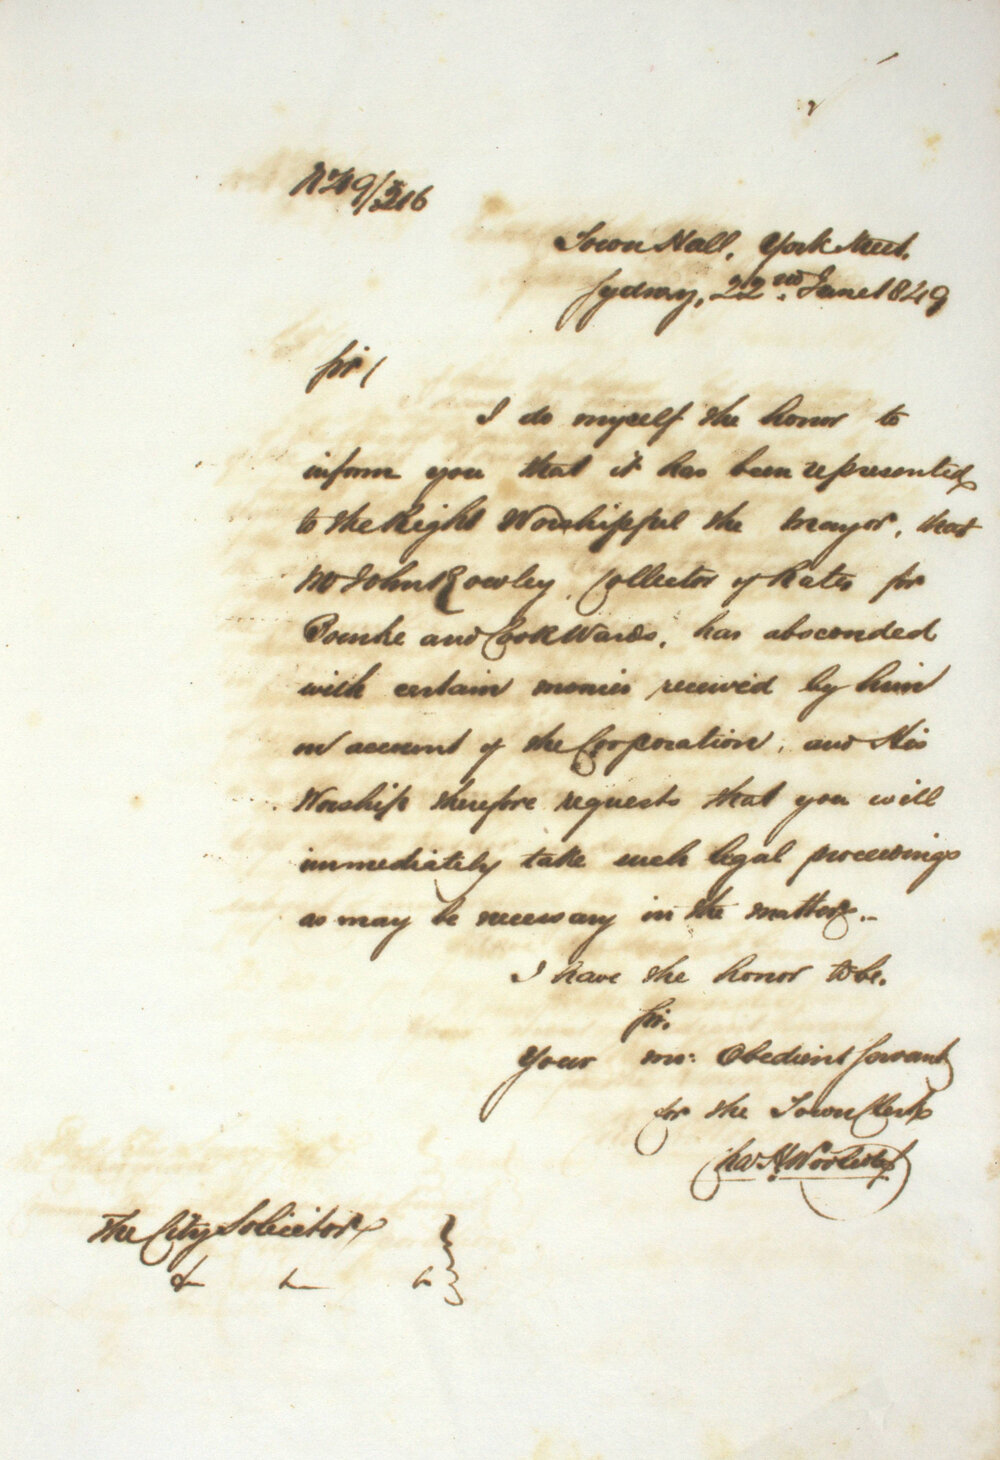 No 49/216
Town Hall, York Street,
Sydney, 22nd June 1849
Sir/
I do myself the honor to
inform you that it has been represented
to the Right Worshipful the Mayor, that
Mr John Rowley, Collector of Rates for
Bourke and Cook Wards, has absconded
with certain monies received by him
on account of the Corporation; and His
Worship therefore requests that you will
immediately take such legal proceedings
as may be necessary in the matter.
I have the honor to be,
Sir,
Your mo: Obedient Servant
for the Town Clerk
Chas H Woolcott
The City Solicitor